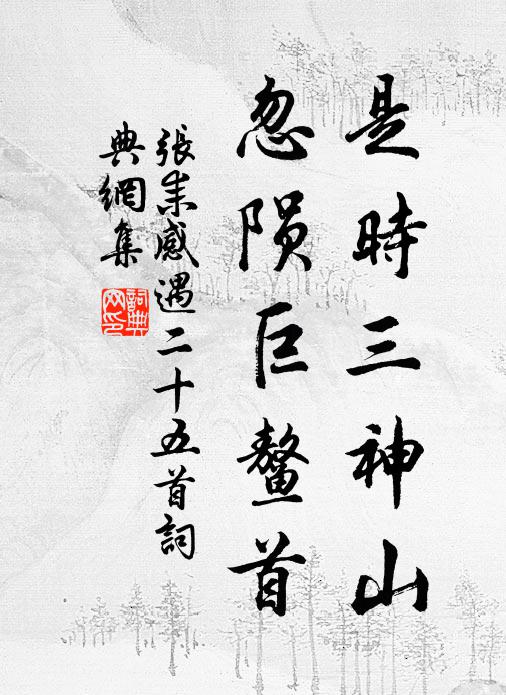 是時三神山
忽陨巨鰲首
張耒感遇二十五首詞
典網集
詞典
网印